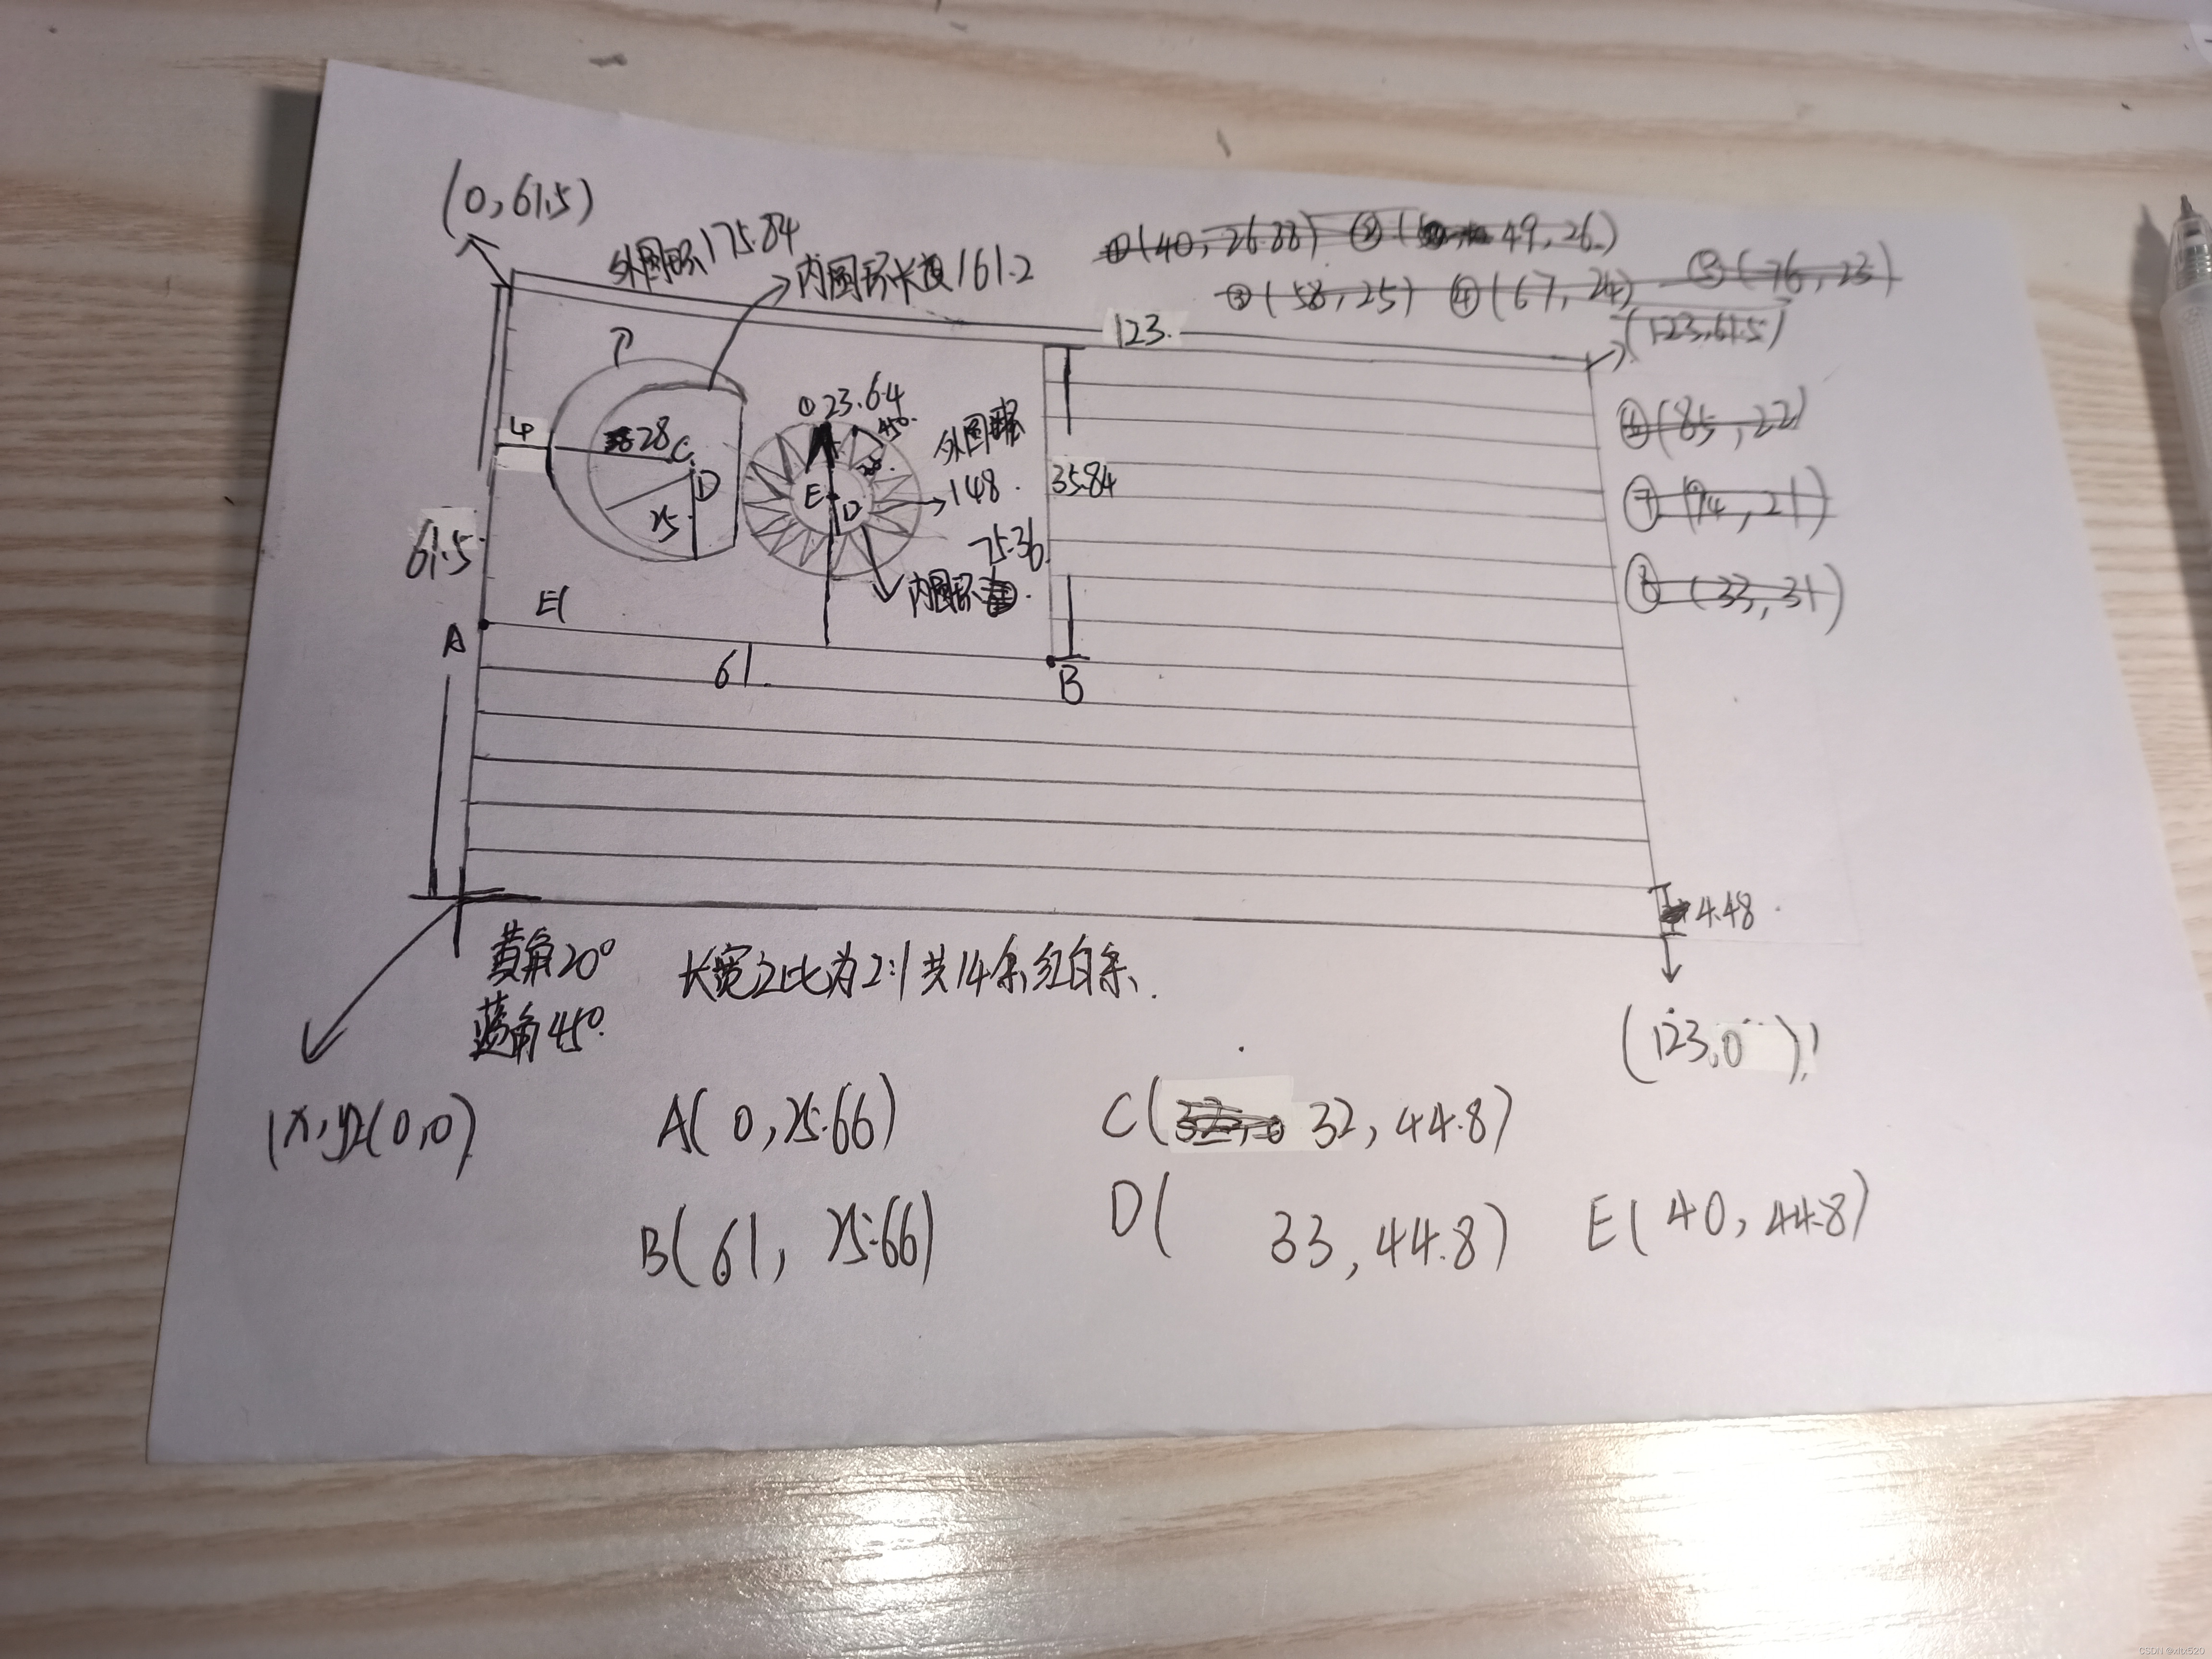 (0,61.5)
外圆环175.84
内圆环长度161.2
①(40,26.88) ②( 49,26)
③(58,25) ④(67,24) ⑤(76,23)
(123,61.5)
123.
P
①23.64
45°
⑥(85,22)
4
28
C
D
外圆
148.
35.84
E
D
⑦(94,21)
25
61.5
75.36
内圆环
⑧(33,31)
E(
A
61
B
4.48
黄角20°
长宽之比为2:1共14条红白条.
蓝角45°
(123,0)
(x,y)(0,0)
A(0,25.66)
C( 32,44.8)
B(61,25.66)
D( 33,44.8)
E(40,44.8)
CSDN @xtbt520